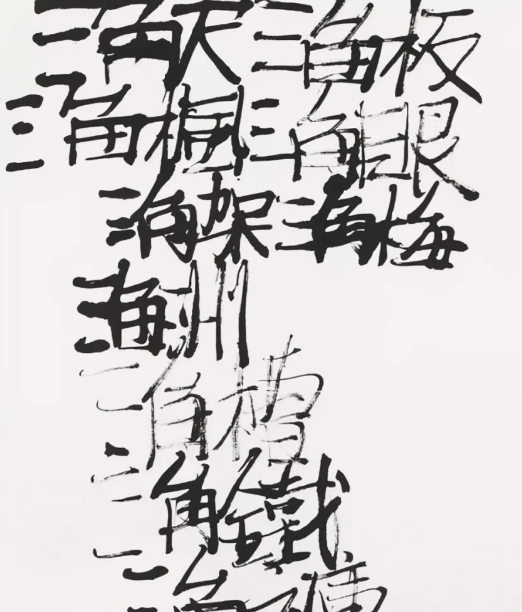 三角 三角板
三角楓 三角眼
三角架 三角梅
三角州
三角
三角鐵
三角